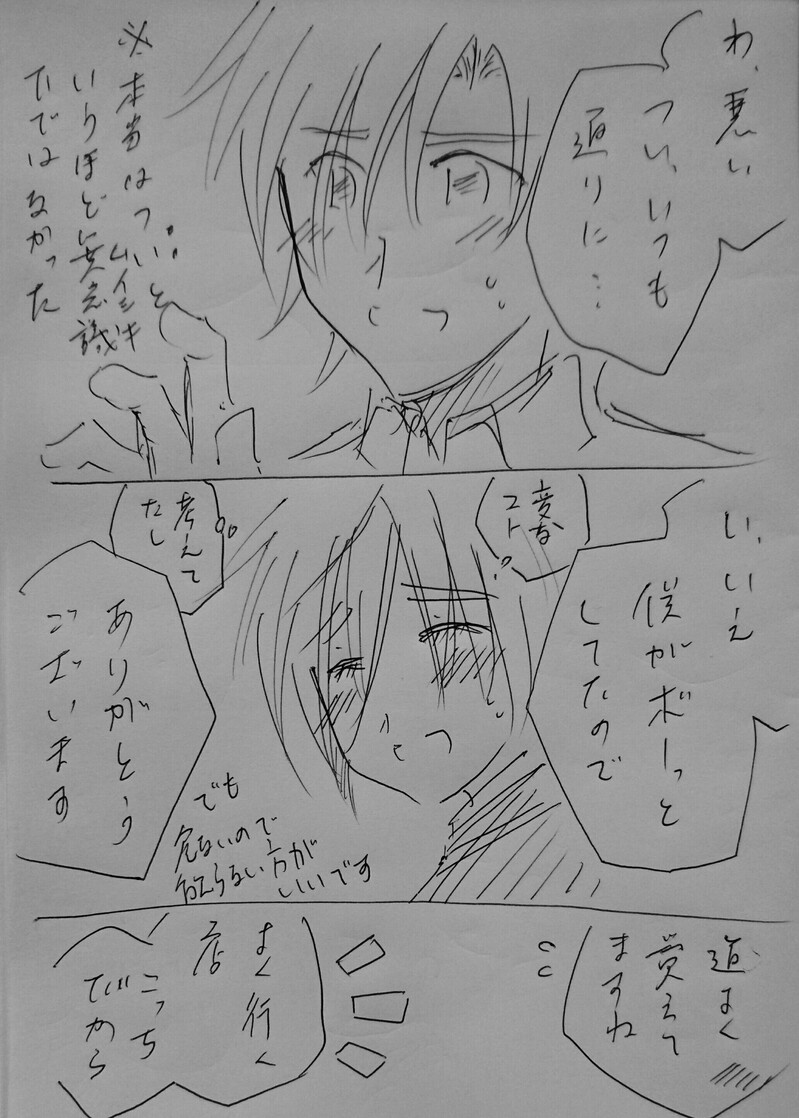 わ、悪い
つい、いつも
通りに…
※本当はつい…と
いうほど無意識
ムイシキ
下ではなかった
い、いえ
僕がボーっと
してたので
変な
コト
考えて
たし
ありがとう
ございます
でも
危ないので
触らない方が
いいです
道よく
覚えて
ますね
よく行く
店
こっち
だから